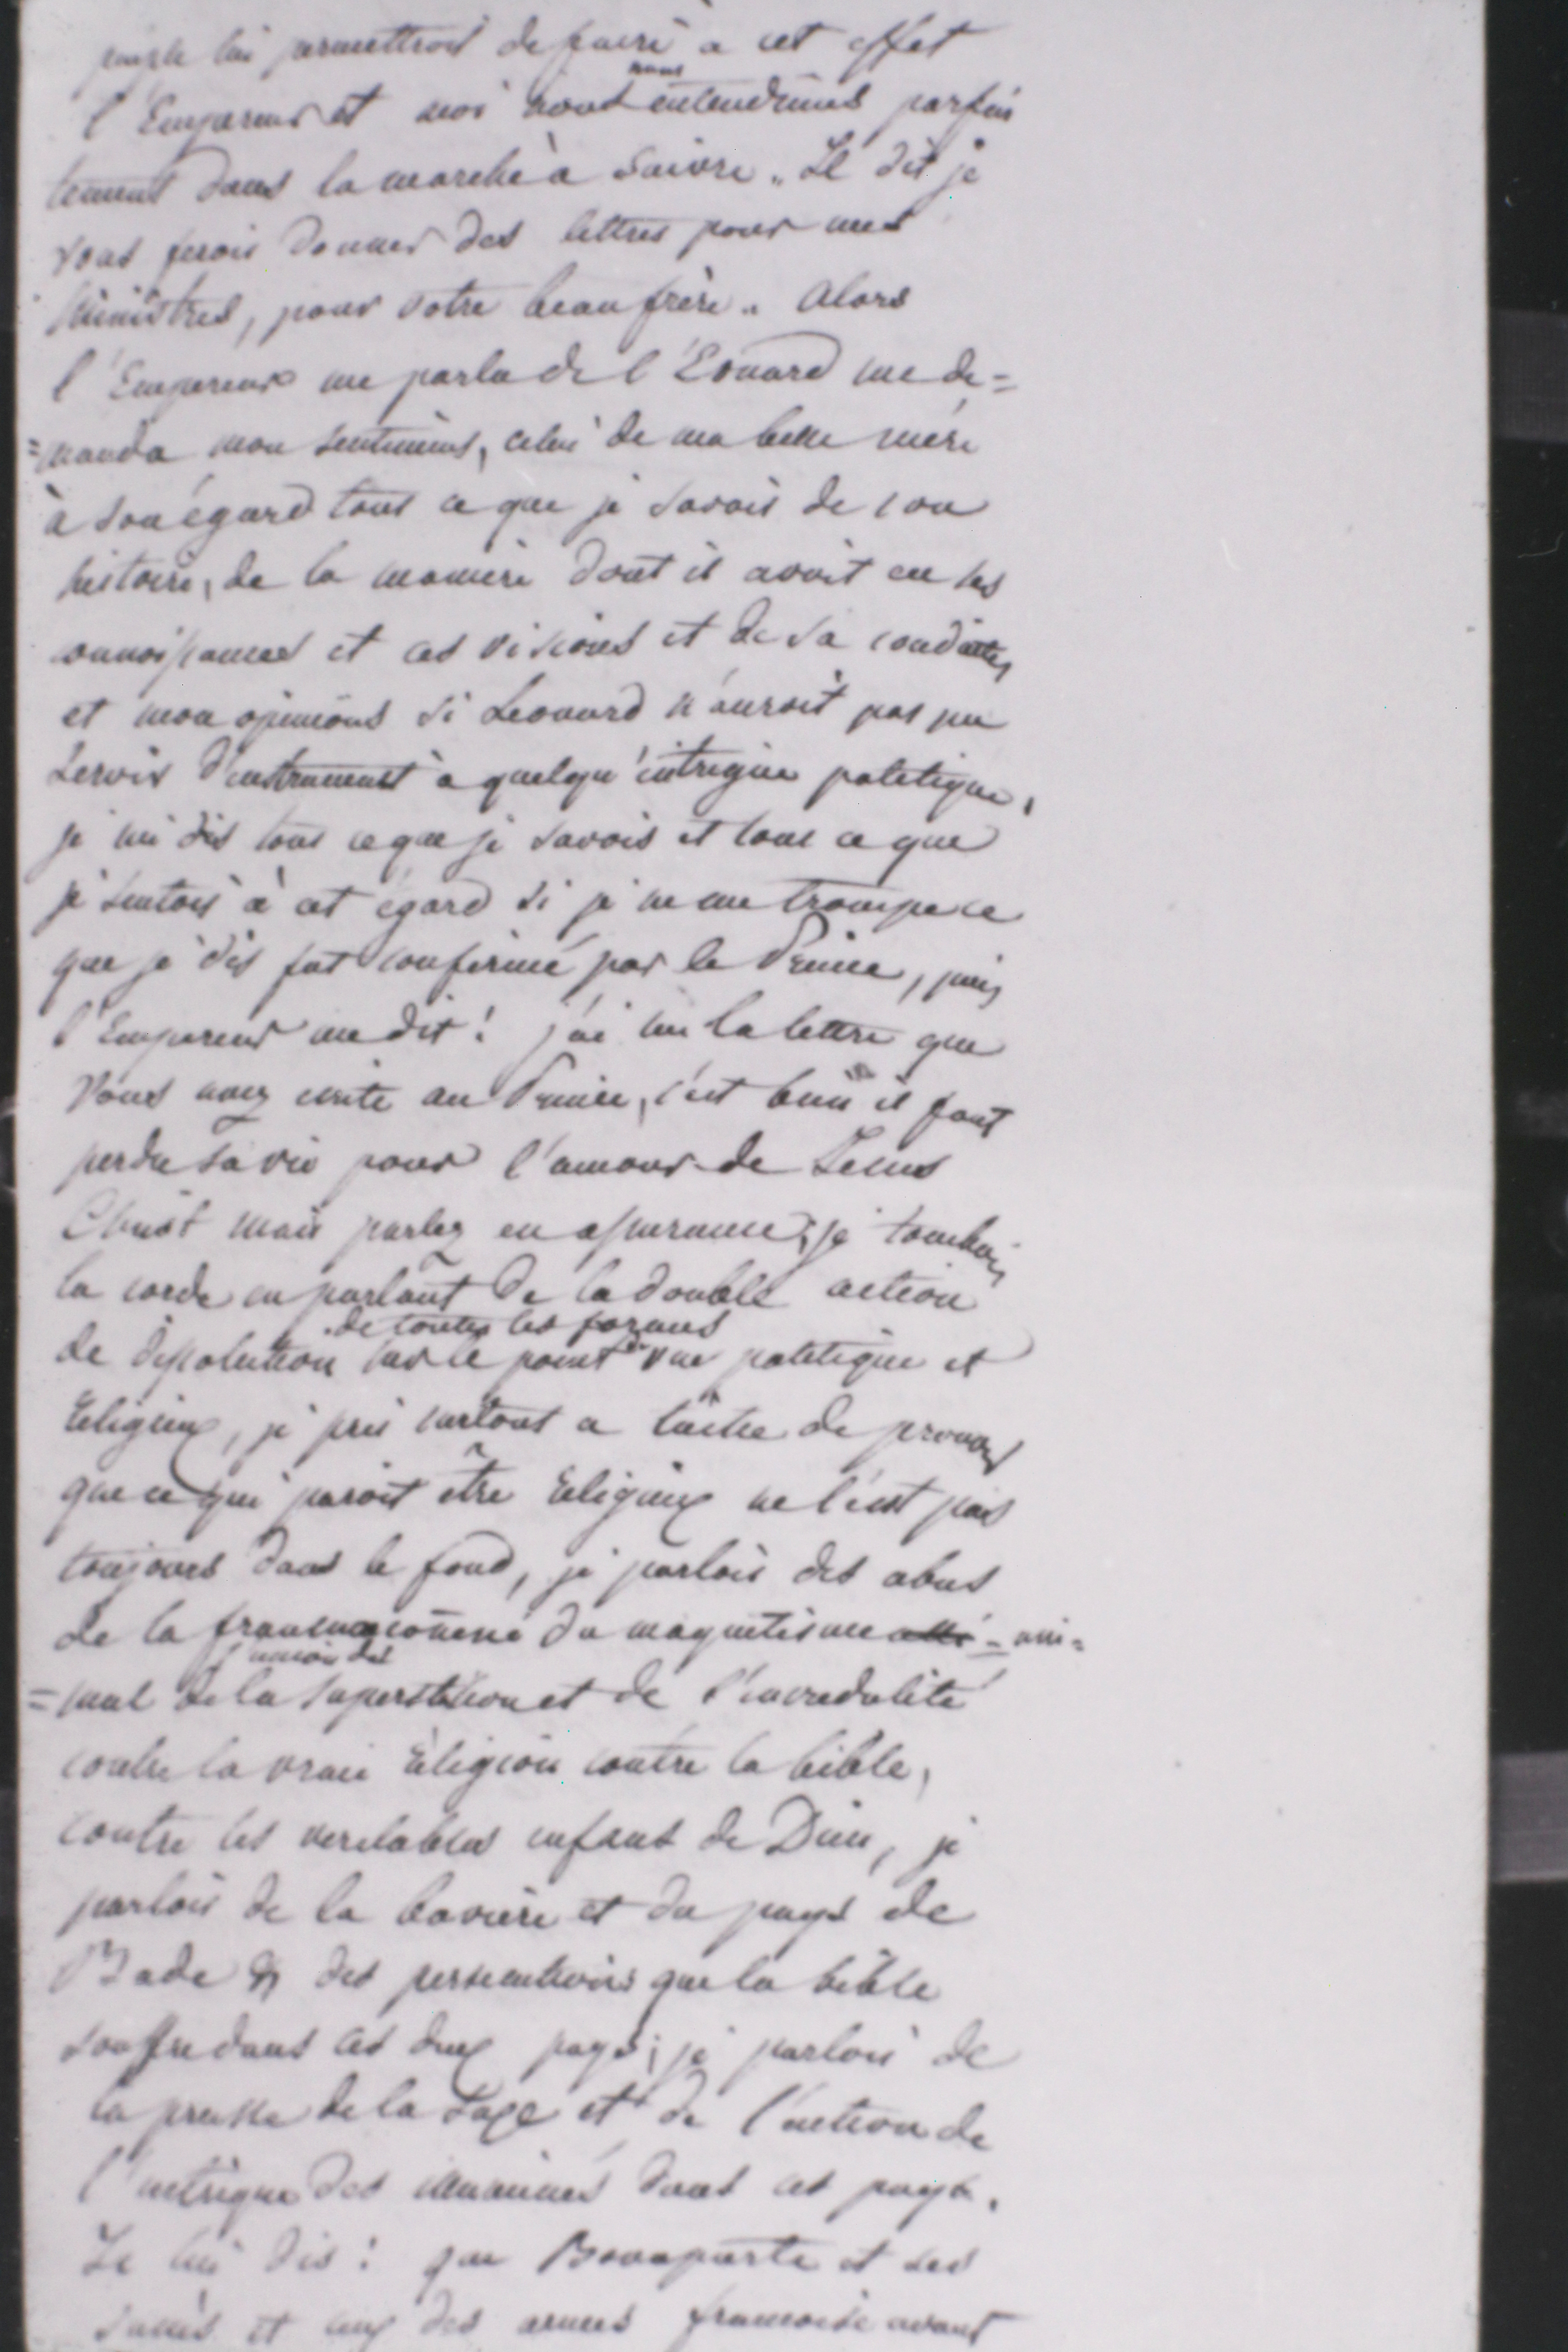 lui permettroit de faire à cet effet
l'Empereur et moi nous nous entendimes parfai
tement dans la marche à suivre. Il dit je
vous ferois donner des lettres pour mes
Ministres, pour votre beau frère. Alors
l'Empereur me parla de l'Eonard me de=
=manda mon sentiment, celui de ma belle mère
à son égard tout ce que je savois de son
histoire, de la manière dont il avoit eu ses
connoissances et ces visions et de sa conduite,
et mon opinions si Leonard n'auroit pas pu
servir d'instrument à quelqu'intrigue politique,
je lui dis tout ce que je savois et tout ce que
je sentois à cet égard si je ne me trompe ce
que je dis fut confirmé par le Prince, puis
l'Empereur me dit! j'ai lu la lettre que
Vous avez écrite au Prince, c'est bien il faut
perdre sa vie pour l'amour de Jesus
Christ mais parlez en assurance; je touchois
la corde en parlant de la double action
de toutes les formes
de dissolution sur le point de vue politique et
Religieux, je pris surtout a tache de prouver
que ce qui paroit être Religieux ne l'est pas
toujours dans le fond, je parlois des abus
de la francmaçonnerie du magnetisme - ani=
l'union des
=mal de la superstition et de l'incredulité
contre la vraie Religion contre la bible,
contre les veritables enfans de Dieu, je
parlois de la baviere et du pays de
Bade & des persecutions que la bible
souffre dans ces deux pays; je parlois de
la presse de la Saxe et de l'action de
l'intrigue des dans ces pays.
Je lui dis: que Bonaparte et ses
et des armes francoise avant